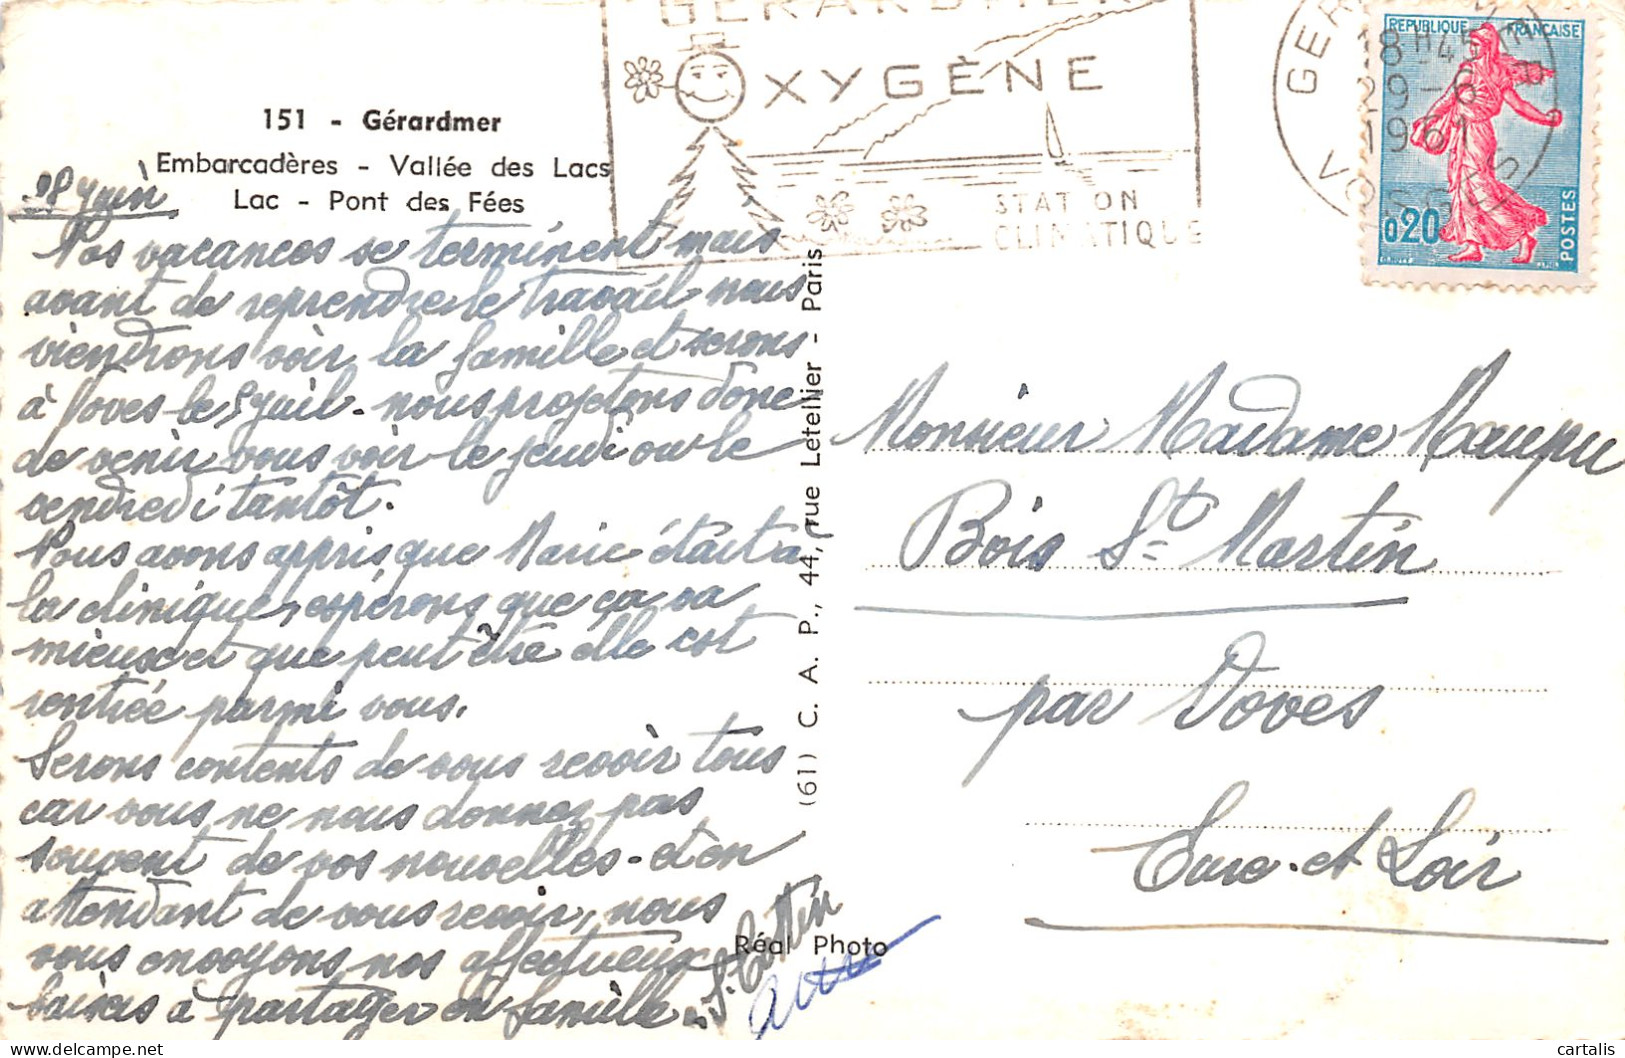 151 - Gérardmer
Embarcadères - Vallée des Lacs
Lac - Pont des Fées
28 Juin
Nos vacances se terminent mais
avant de reprendre le travail nous
viendrons voir la famille et serons
à Voves le 5 Juil - nous projetons donc
de venir vous voir le jeudi ou le
vendredi tantôt.
Nous avons appris que Marie était à
la clinique, espérons que ça va
mieux et que peut être elle est
rentrée parmi vous.
Serons contents de vous revoir tous
car vous ne nous donnez pas
souvent de vos nouvelles - et en
attendant de vous revoir, nous
vous envoyons nos affectueux
baisers à partager en famille
(61) C. A. P., 44, rue Letellier - Paris
Réal Photo
GÉRARDMER
OXYGÈNE
STATION
CLIMATIQUE
18 H 45
29 - 6
1961
VOSGES
REPUBLIQUE FRANÇAISE
0,20
POSTES
Monsieur Madame Maupu
Bois St Martin
par Voves
Eure-et Loir
cartalis